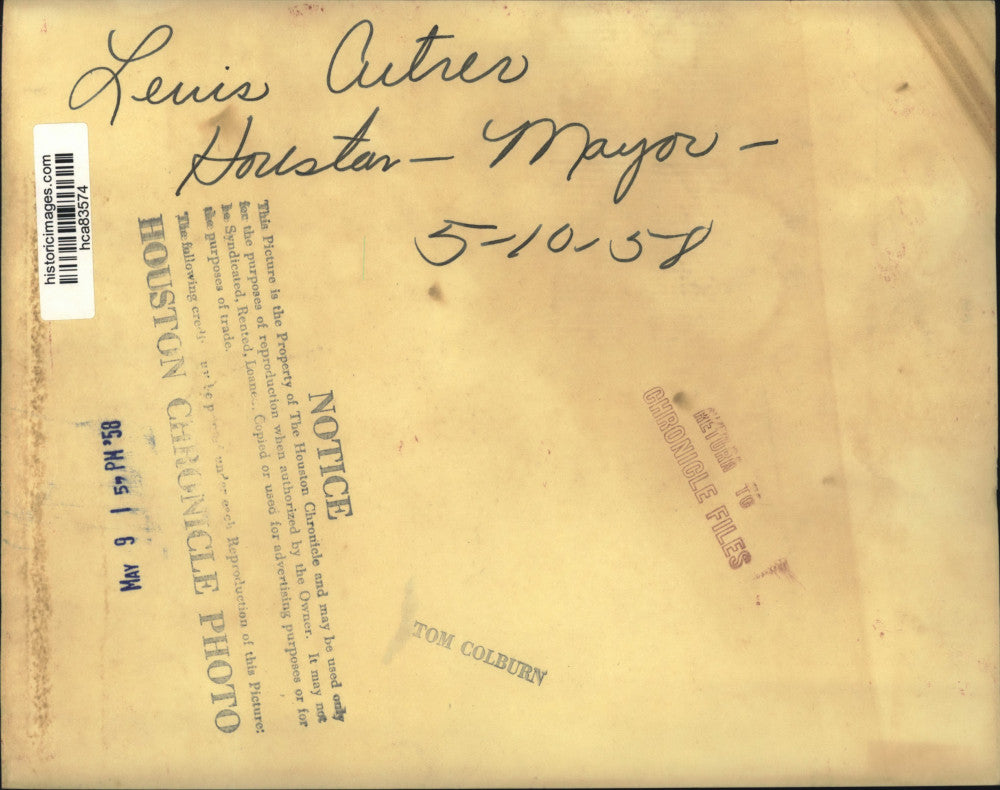 Lewis Cutrer
Houston - Mayor -
5-10-58
historicimages.com
hca83574
NOTICE
This Picture is the Property of The Houston Chronicle and may be used only
for the purposes of reproduction when authorized by the Owner. It may not
be Syndicated, Rented, Loaned, Copied or used for advertising purposes or for
the purposes of trade.
The following credit under each Reproduction of this Picture:
HOUSTON CHRONICLE PHOTO
MAY 9 1 57 PM '58
RETURN TO
CHRONICLE FILES
TOM COLBURN